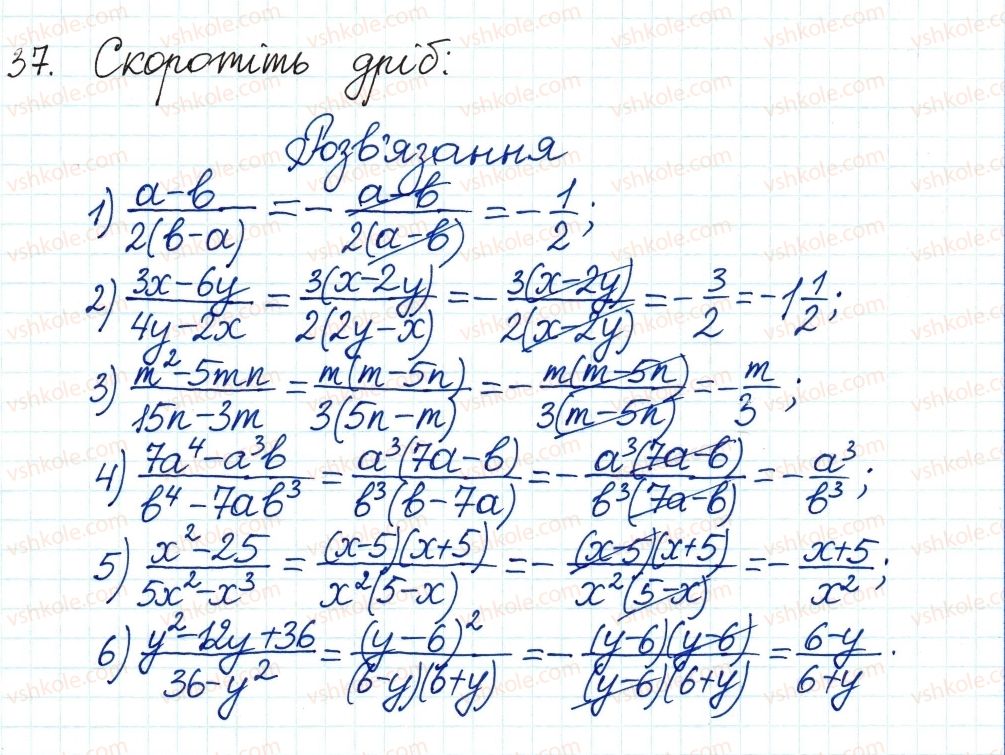 37. Скоротіть дріб:
Розв'язання
1) (a-в)/(2(в-a)) = -(a-в)/(2(a-в)) = -1/2;
2) (3x-6y)/(4y-2x) = (3(x-2y))/(2(2y-x)) = -(3(x-2y))/(2(x-2y)) = -3/2 = -1 1/2;
3) (m²-5mn)/(15n-3m) = (m(m-5n))/(3(5n-m)) = -(m(m-5n))/(3(m-5n)) = -m/3;
4) (7a⁴-a³в)/(в⁴-7aв³) = (a³(7a-в))/(в³(в-7a)) = -(a³(7a-в))/(в³(7a-в)) = -a³/в³;
5) (x²-25)/(5x²-x³) = ((x-5)(x+5))/(x²(5-x)) = -((x-5)(x+5))/(x²(5-x)) = -(x+5)/x²;
6) (y²-12y+36)/(36-y²) = (y-6)²/((6-y)(6+y)) = -((y-6)(y-6))/((y-6)(6+y)) = (6-y)/(6+y).